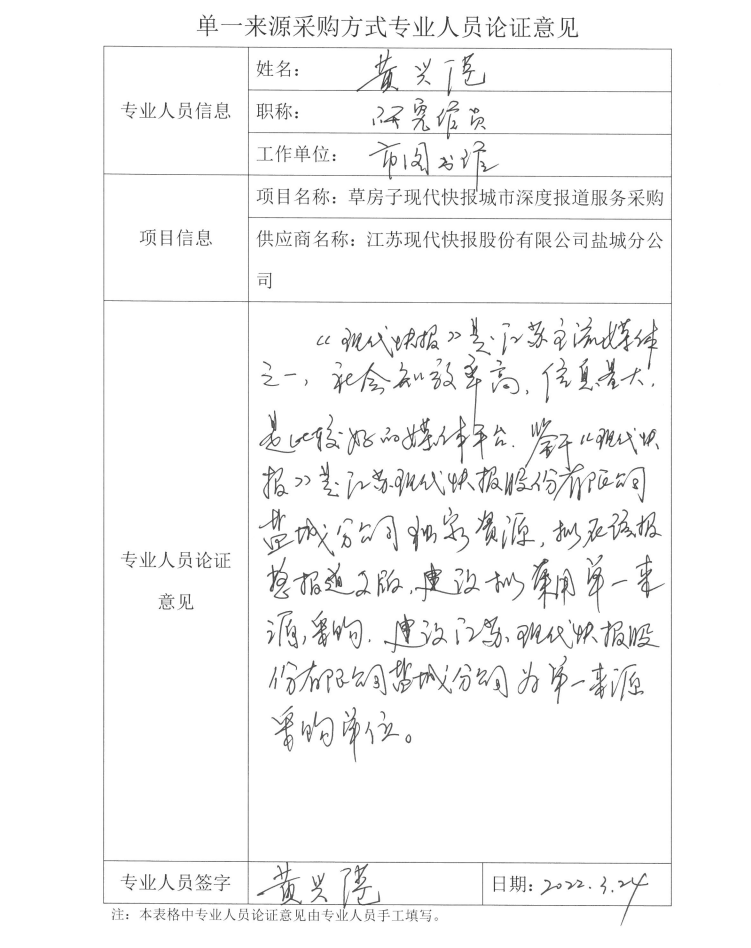 单一来源采购方式专业人员论证意见
专业人员信息
姓名：黄兴港
职称：研究馆员
工作单位：市图书馆
项目信息
项目名称：草房子现代快报城市深度报道服务采购
供应商名称：江苏现代快报股份有限公司盐城分公
司
专业人员论证
意见
《现代快报》是江苏主流媒体
之一，社会知效率高，信息量大，
是比较好的媒体平台．鉴于《现代快
报》是江苏现代快报股份有限公司
盐城分公司独家资源，拟在该报
报道文版，建议拟采用单一来
源采购．建议江苏现代快报股
份有限公司盐城分公司为单一来源
采购单位。
专业人员签字
黄兴港
日期：2022.3.24
注：本表格中专业人员论证意见由专业人员手工填写。